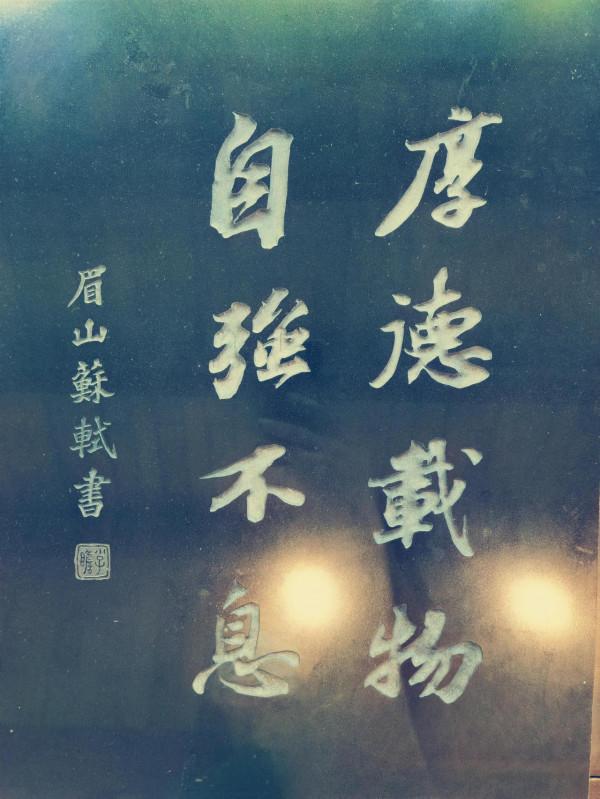 厚德載物
自強不息
眉山蘇軾書
子瞻